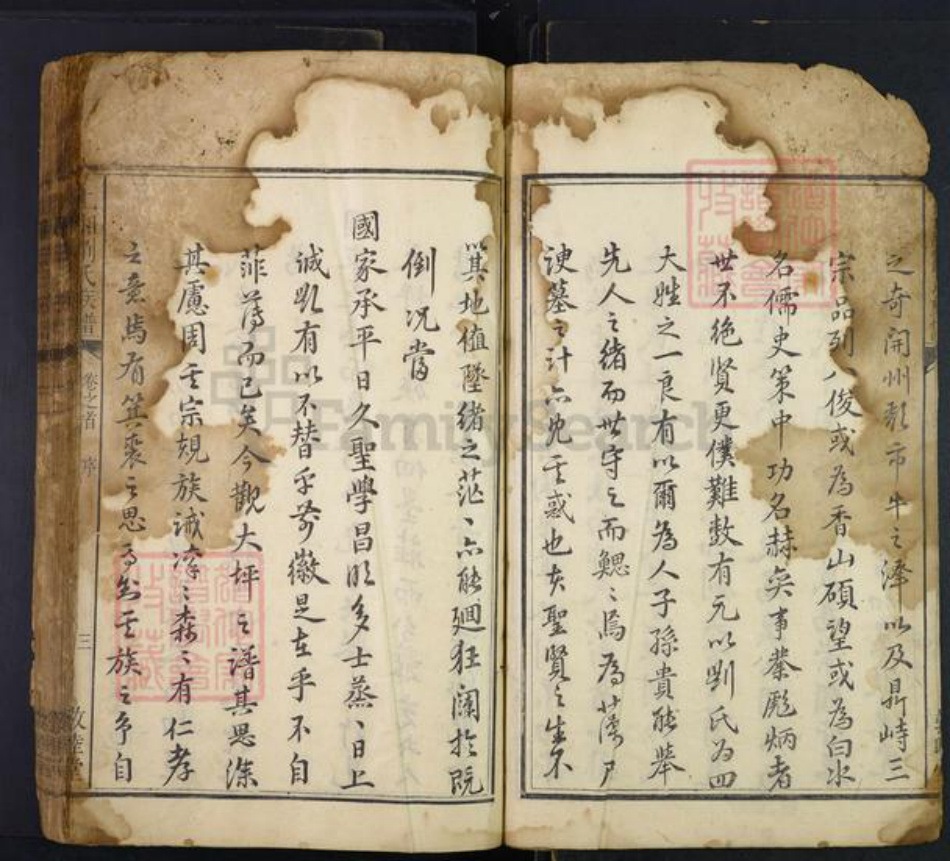 之奇開州彰市牛之澤以及鼎峙三
宗品列八俊或為香山碩望或為白水
名儒史策中功名赫奕事業彪炳者
世不絕賢更僕難數有元以劉氏为四
大姓之一良有以爾為人子孫貴能舉
先人之緒而世守之而鰓〻焉為藻
諛墓之計亦見其惑也夫聖賢之生不
箕地植墜緒之茫〻亦能廻狂瀾於既
倒况當
國家承平日久聖學昌明多士蒸〻日上
誠觀有以不替乎前徽是在乎不自
菲薄而已矣今觀大坪之譜其思深
其慮周其宗規族誡凜〻森〻有仁孝
之意焉有箕裘之思焉於其族之争自
氏族譜 卷之首 序 三 敦睦堂
FamilySearch